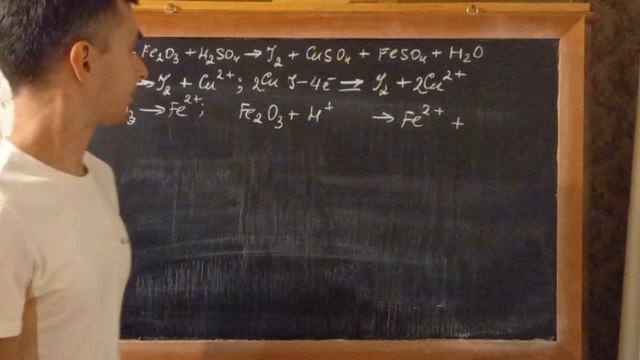 Fe₂O₃ + H₂SO₄ → J₂ + CuSO₄ + FeSO₄ + H₂O
→ J₂ + Cu²⁺; 2CuJ - 4e⁻ = J₂ + 2Cu²⁺
₃ → Fe²⁺; Fe₂O₃ + H⁺ → Fe²⁺ +